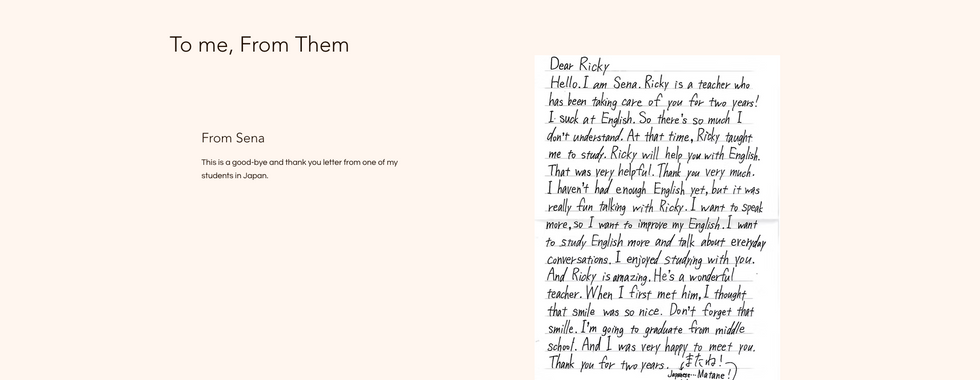 To me, From Them
From Sena
This is a good-bye and thank you letter from one of my
students in Japan.
Dear Ricky
Hello. I am Sena. Ricky is a teacher who
has been taking care of you for two years!
I suck at English. So there's so much I
don't understand. At that time, Ricky taught
me to study. Ricky will help you with English.
That was very helpful. Thank you very much.
I haven't had enough English yet, but it was
really fun talking with Ricky. I want to speak
more, so I want to improve my English. I want
to study English more and talk about everyday
conversations. I enjoyed studying with you.
And Ricky is amazing. He's a wonderful
teacher. When I first met him, I thought
that smile was so nice. Don't forget that
smille. I'm going to graduate from middle
school. And I was very happy to meet you.
Thank you for two years. (またね!
Japanese... Matane!)